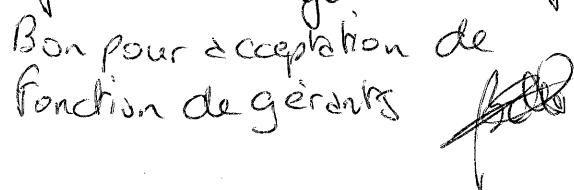 Bon pour acceptation de
fonction de gérants